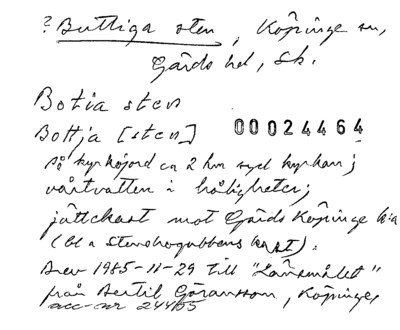 ? Buttiga sten, Köpinge sn,
Gärds hd, Sk.
Botia sten
Bottja [sten] 00024464
på kyrkojord ca 2 hm syd kyrkan;
vårtvatten i håligheter;
jättekast mot Gärds Köpinge k:a
(bl a Stenshogubbens kast).
Brev 1985-11-29 till "Länsmålet"
från Bertil Göransson, Köpinge,
acc-nr